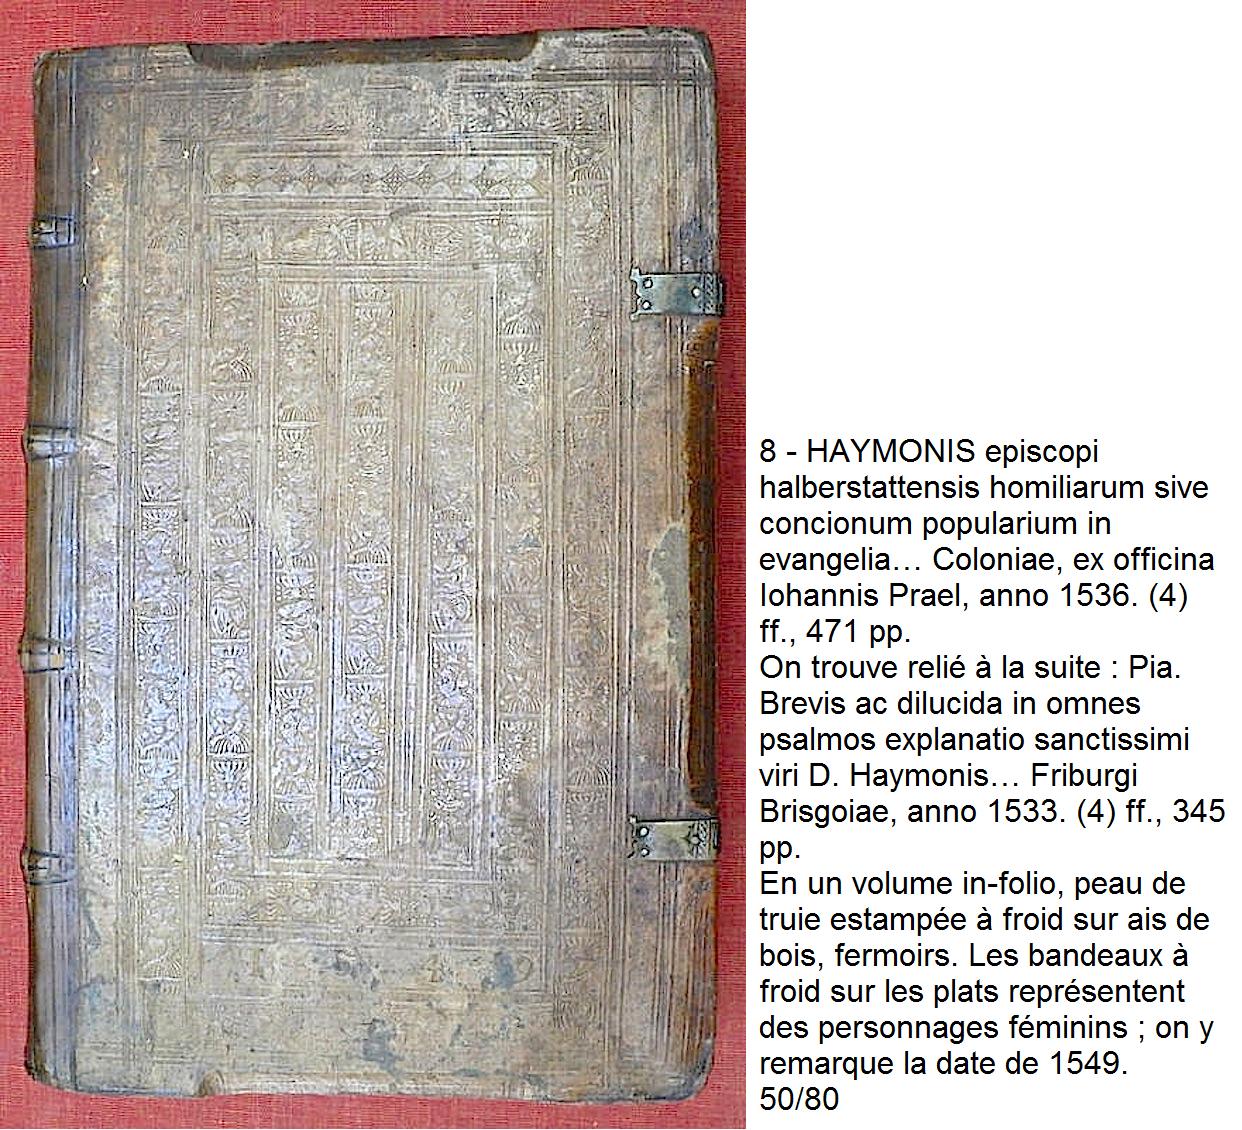 8 - HAYMONIS episcopi
halberstattensis homiliarum sive
concionum popularium in
evangelia… Coloniae, ex officina
Iohannis Prael, anno 1536. (4)
ff., 471 pp.
On trouve relié à la suite : Pia.
Brevis ac dilucida in omnes
psalmos explanatio sanctissimi
viri D. Haymonis… Friburgi
Brisgoiae, anno 1533. (4) ff., 345
pp.
En un volume in-folio, peau de
truie estampée à froid sur ais de
bois, fermoirs. Les bandeaux à
froid sur les plats représentent
des personnages féminins ; on y
remarque la date de 1549.
50/80